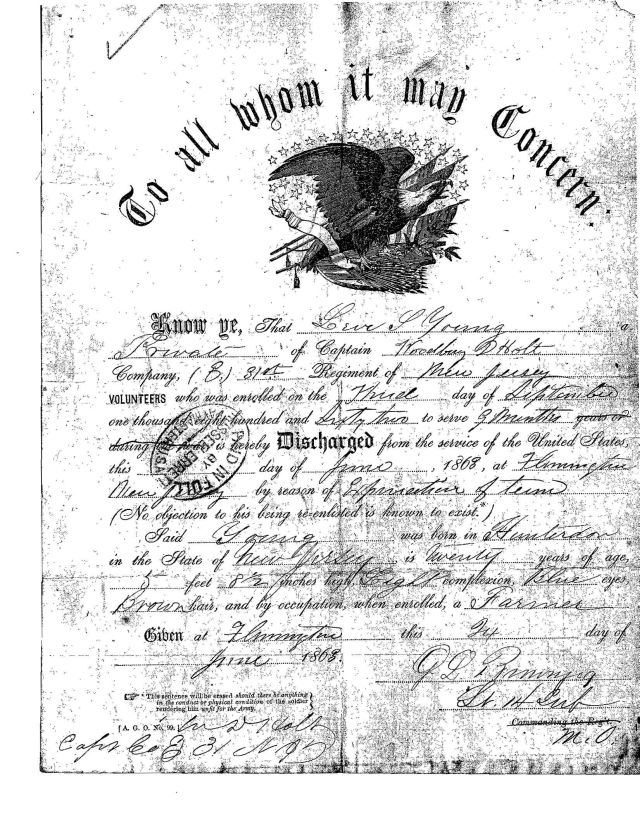 To all whom it may Concern:
Know ye, That Levi S Young a
Private of Captain Woodbury D Holt
Company, (E,) 31st. Regiment of New Jersey
VOLUNTEERS who was enrolled on the Third day of September
one thousand eight hundred and Sixty two to serve 9 Months years or
during the war, is hereby Discharged from the service of the United States,
this day of June, 1863, at Flemington
New Jersey by reason of Expiration of term
(No objection to his being re-enlisted is known to exist.*)
Said Young was born in Hunterdon
in the State of New Jersey is Twenty years of age,
5 feet 8½ inches high, Light complexion, Blue eyes,
Brown hair, and by occupation, when enrolled, a Farmer
Given at Flemington this 24 day of
June 1863.
*This sentence will be erased should there be anything
in the conduct or physical condition of the soldier
rendering him unfit for the Army.
[A. G. O. No. 99.] D Holt
Capt Co E 31 N.J.
Commanding the Reg't.
M.O.
PAID IN FULL
BY